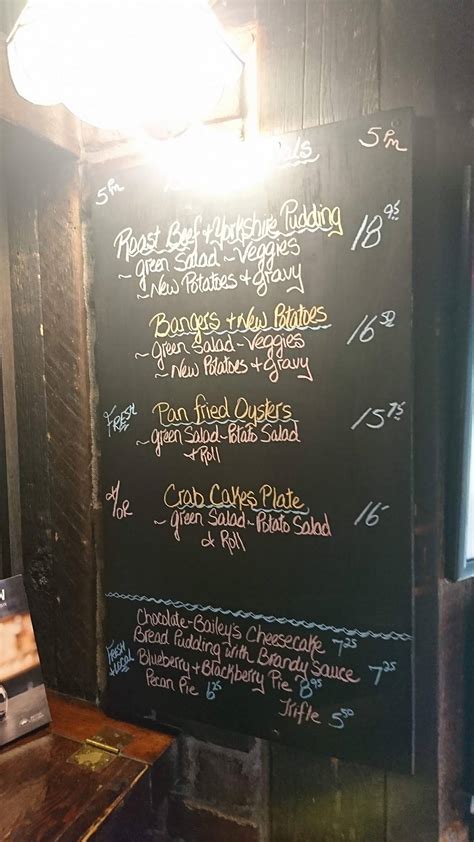 5 Pm
5 Pm
Roast Beef + Yorkshire Pudding 18 95
~ Green Salad ~ Veggies
~ New Potatoes & Gravy
Bangers + New Potatoes 16 50
~ Green Salad ~ Veggies
~ New Potatoes & Gravy
FRESH Pan fried Oysters 15 75
~ Green Salad ~ Potato Salad
& Roll
&/OR Crab Cakes Plate 16-
~ Green Salad ~ Potato Salad
& Roll
Chocolate-Bailey's Cheesecake 7 25
Bread Pudding with Brandy Sauce 7 25
FRESH & LOCAL Blueberry + Blackberry Pie 8 95
Pecan Pie 6 25
Trifle 5 50